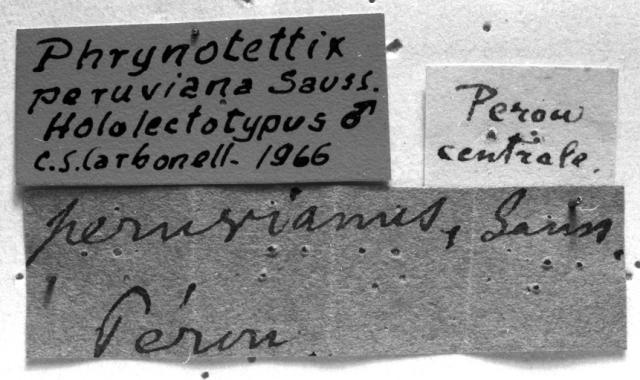 Phrynotettix
peruviana Sauss.
Hololectotypus ♂
C.S. Carbonell - 1966
Perou
centrale.
peruvianus, Sauss.
Pérou